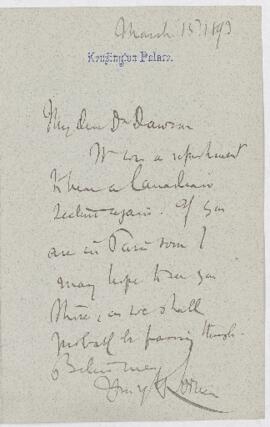 March 15 1893
Kensington Palace.
My dear Dr Dawson
It was a refreshment
to hear a Canadian
lecture again. If you
are in Paris soon I
may hope to see you
there, as we shall
probably be passing through.
Believe me